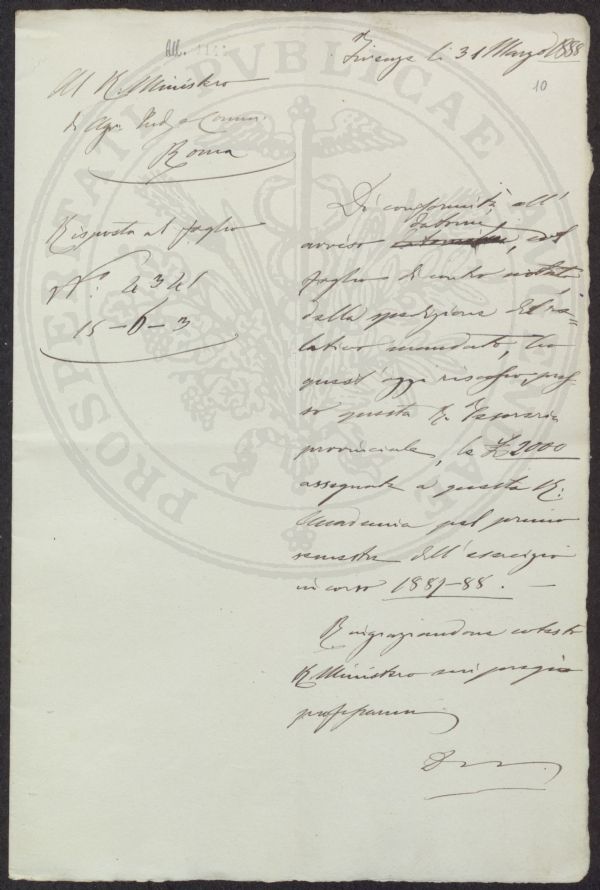 All.
Firenze li 31 Marzo 1888
10
Al R. Ministero
di Agr. Ind. e Comm.
Roma
Risposta al foglio
N.°
15-6-3
Di conformità, all'
avviso datomi, col
foglio di contro
della spedizione del re-
lativo mandato, ho
quest'oggi riscosso pres-
so questa R. Tesoreria
provinciale, le £ 2000
assegnate a questa R.
Accademia pel primo
semestre dell'esercizio
in corso 1887-88. —
Ringraziandone cotesto
R. Ministero mi pregio
professarmi
PROSPERITATI PUBLICAE AUGENDAE